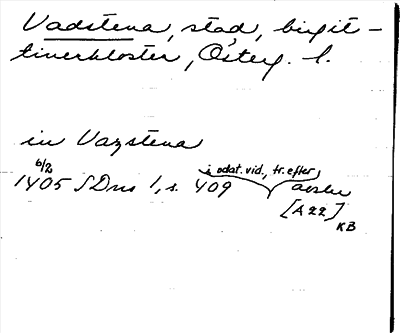 Vadstena, stad, birgit-
tinerkloster, Österg. l.
in Vazstena
6/2 i odat. vid., tr. efter
1405 SDns 1, s. 409 avskr
[A 22]
KB